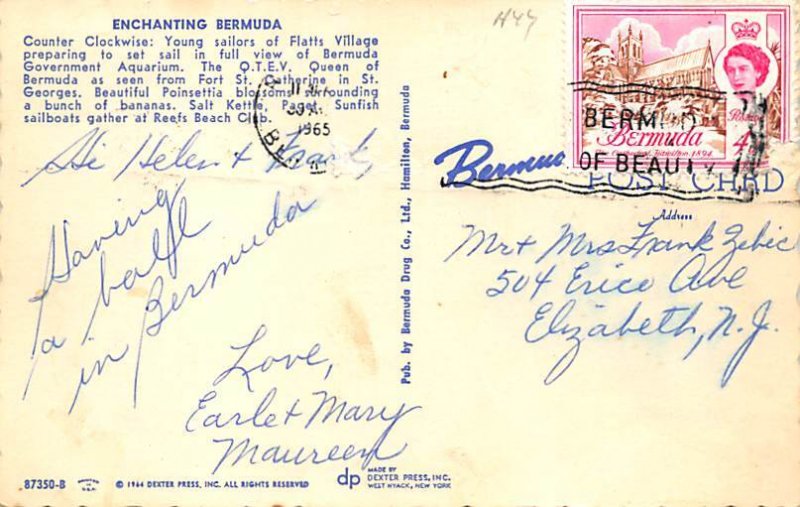 ENCHANTING BERMUDA
Counter Clockwise: Young sailors of Flatts Village
preparing to set sail in full view of Bermuda
Government Aquarium. The Q.T.E.V. Queen of
Bermuda as seen from Fort St. Catherine in St.
Georges. Beautiful Poinsettia blossoms surrounding
a bunch of bananas. Salt Kettle, Paget. Sunfish
sailboats gather at Reefs Beach Club.
1965
Hi Helen & Frank,
Having
a ball
in Bermuda
Love,
Earle & Mary
Maureen
87350-B
© 1964 DEXTER PRESS, INC. ALL RIGHTS RESERVED
dp
MADE BY
DEXTER PRESS, INC.
WEST NYACK, NEW YORK
Pub. by Bermuda Drug Co., Ltd., Hamilton, Bermuda
Bermuda
4
BERMUDA
OF BEAUTY
Bermuda
POST CARD
Address
Mr & Mrs Frank Zebic
504 Erico Ave
Elizabeth, N.J.